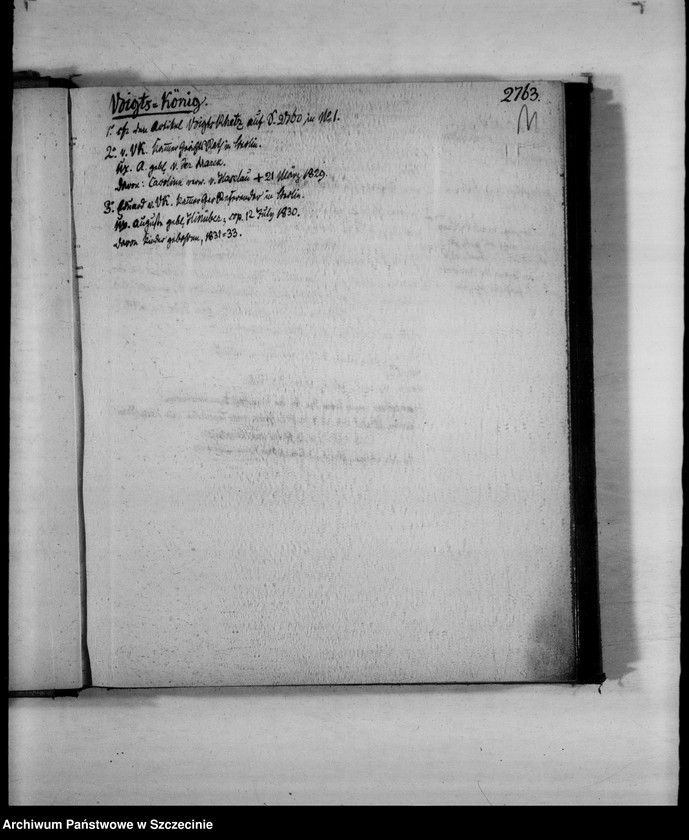 2763.
Voigts=König.
1. cfr den Artikel Voigts Rhetz auf S. 2760 in № 1.
2. v. VK. Kammer Gerichts Rath in Berlin.
Ux. A. geb. v. der Marck.
Davon: Caroline verw. v. Haeslau + 21 März 1829.
3. Eduard v. VK. Kammer Ger Referendar in Berlin.
Ux. Auguste geb. Hinüber, cop. 12 July 1830.
Davon Kinder geboren, 1831=33.
Archiwum Państwowe w Szczecinie